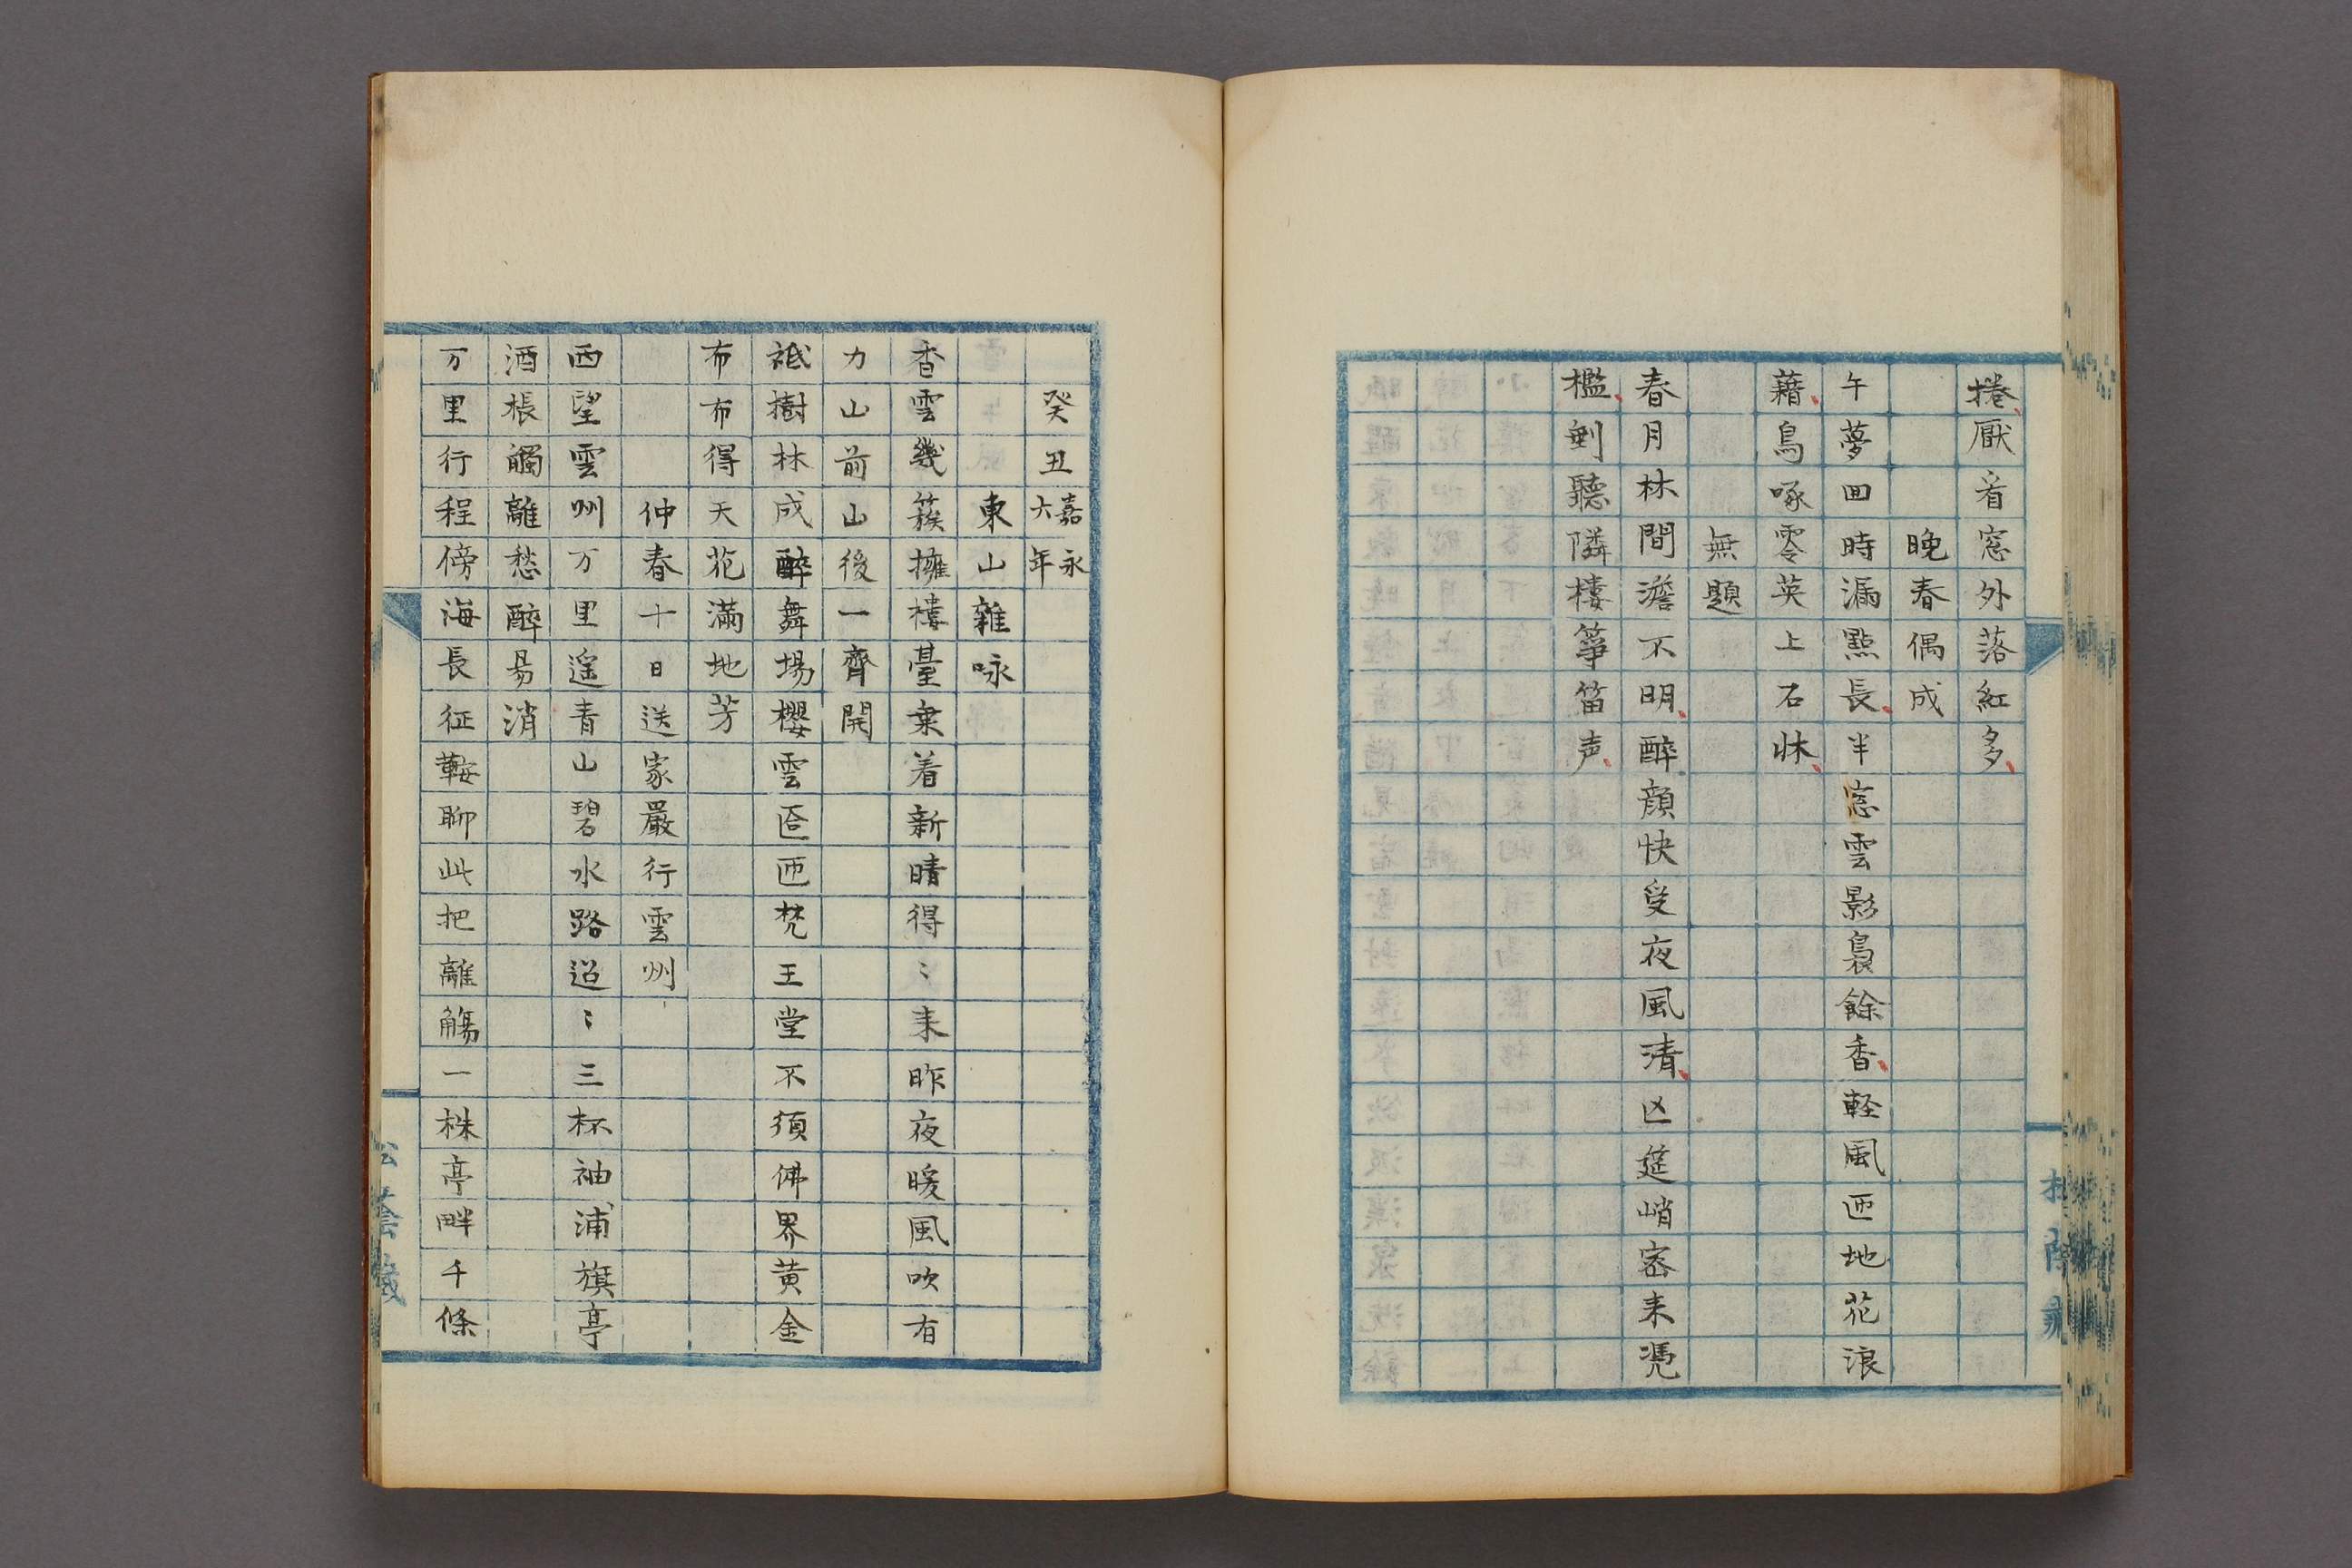 捲厭看窓外落紅多
晩春偶成
午夢囬時漏點長半窓雲影裊餘香軽風匝地花浪
藉鳥啄零英上石牀
無題
春月林間澹不明醉顔快受夜風清凶筵峭寄来憑
檻剩聽隣楼箏笛声
癸丑嘉永
六年
東山雜咏
香雲幾簇擁樓臺乗着新晴得〻来昨夜暖風吹有
力山前山後一齊開
祗樹林成醉舞場櫻雲匼匝梵王堂不須佛界黄金
布布得天花滿地芳
仲春十日送家嚴行雲州
西望雲州万里遥青山碧水路迢〻三杯袖浦旗亭
酒棖觸離愁醉易消
万里行程傍海長征鞍聊此把離觴一株亭畔千條
松蔭